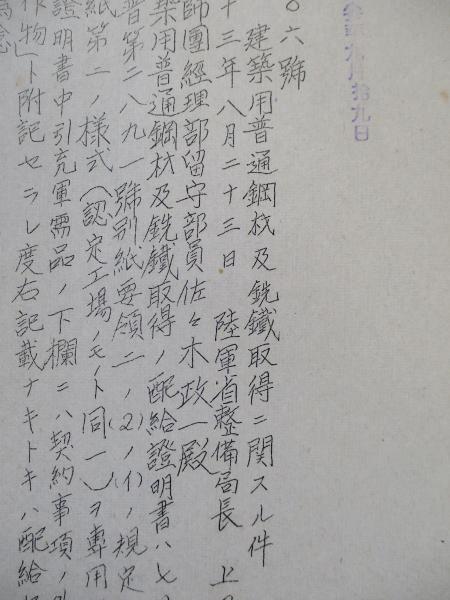 拾九日
〇六號
建築用普通鋼材及銑鐵取得ニ関スル件
十三年八月二十三日 陸軍省整備局長 上
師團經理部留守部員佐々木政一殿
築用普通鋼材及銑鐵取得ノ配給證明書ハ七
普第二八九一號別紙要領二ノ(2)ノ(イ)ノ規定
紙第二ノ様式(認定工場ノモノト同一)ヲ専用
證明書中引充軍需品ノ下欄ニハ契約事項ノ外
作物」ト附記セラレ度右記載ナキトキハ配給
為念